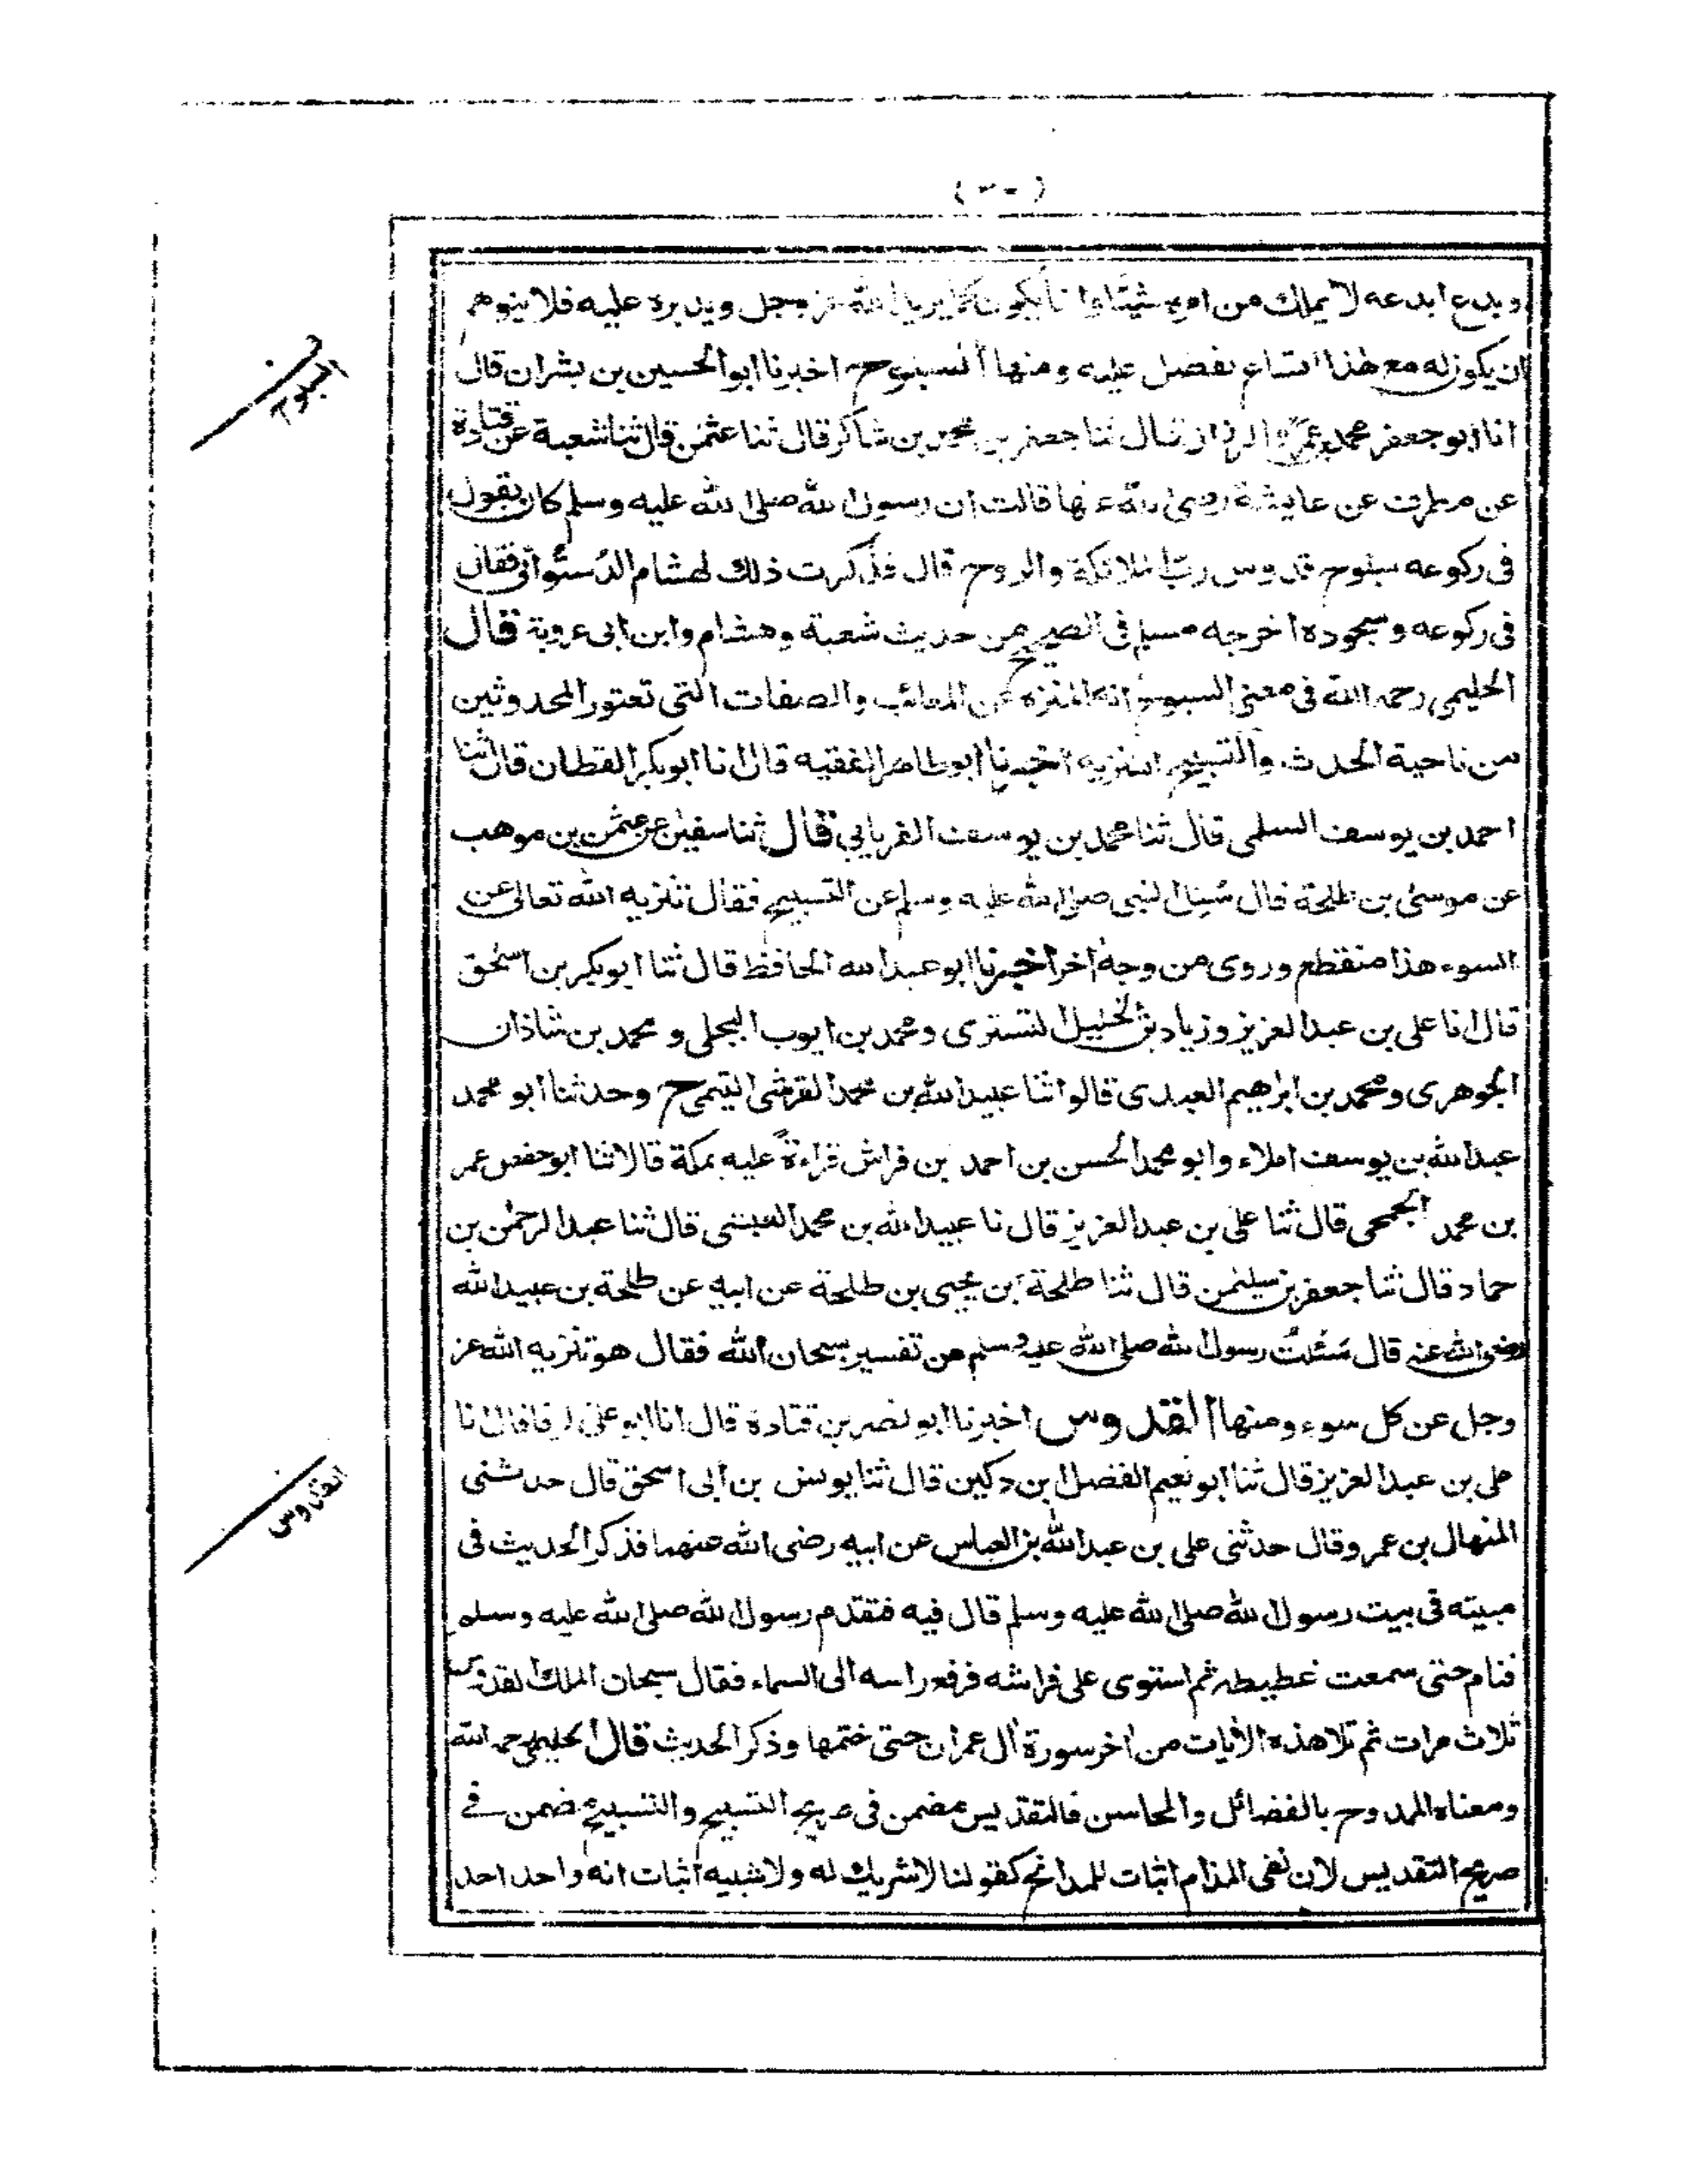 وبدع ابدعه لا يملك من امره شيئا وانما يكون كما يريد الله عز وجل ويدبره عليه فلا يتوهم
ان يكون له مع هذا امتناع بفضل عليه ومنها السبوح اخبرنا ابو الحسين بن بشران قال
انا ابو جعفر محمد بن عمرو الرزاز قال ثنا جعفر بن محمد بن شاكر قال ثنا عثمن قال ثنا شعبة عن قتادة
عن مطرف عن عايشة رضى الله عنها قالت ان رسول الله صلى الله عليه وسلم كان يقول
فى ركوعه سبوح قدوس رب الملائكة والروح قال فذكرت ذلك لهشام الدستوائى فقال
فى ركوعه وسجوده اخرجه مسلم فى الصحيح من حديث شعبة وهشام وابن ابى عروبة قال
الحليمى رحمه الله فى معنى السبوح انه المنزه عن المعائب والصفات التى تعتور المحدوثين
من ناحية الحدث والتسبيح التنزيه اخبرنا ابو طاهر الفقيه قال انا ابو بكر القطان قال ثنا
احمد بن يوسف السلمى قال ثنا محمد بن يوسف الفريابي قال ثنا سفين عن عثمن بن موهب
عن موسى بن طلحة قال سُئِل النبى صلى الله عليه وسلم عن التسبيح فقال تنزيه الله تعالى عن
السوء هذا منقطع وروى من وجه اخر اخبرنا ابو عبد الله الحافظ قال ثنا ابو بكر بن اسحٰق
قال انا على بن عبد العزيز وزياد بن الخليل التسترى ومحمد بن ايوب البجلى و محمد بن شاذان
الجوهرى ومحمد بن ابرهيم العبدى قالوا ثنا عبيد الله بن محمد القرشى التيمى ح وحدثنا ابو محمد
عبد الله بن يوسف املاء وابو محمد الحسن بن احمد بن فراش قراءةً عليه بمكة قالا ثنا ابو حفص عمر
بن محمد الجمحى قال ثنا على بن عبد العزيز قال نا عبيد الله بن محمد العيشى قال ثنا عبد الرحمٰن بن
حماد قال ثنا جعفر بن سليمٰن قال ثنا طلحة بن يحيى بن طلحة عن ابيه عن طلحة بن عبيد الله
رضى الله عنه قال سَئَلتُ رسول الله صلى الله عليه وسلم من تفسير سبحان الله فقال هو تنزيه الله عز
وجل عن كل سوء ومنها القدوس اخبرنا ابو نصر بن قتادة قال انا ابو على الرفا قال انا
على بن عبد العزيز قال ثنا ابو نعيم الفضل بن دكين قال ثنا يونس بن ابى اسحٰق قال حدثنى
المنهال بن عمر وقال حدثنى على بن عبد الله بن العباس عن ابيه رضى الله عنهما فذكر الحديث فى
مبيته فى بيت رسول الله صلى الله عليه وسلم قال فيه فتقدم رسول الله صلى الله عليه وسلم
فنام حتى سمعت غطيطه ثم استوى على فراشه فرفع راسه الى السماء فقال سبحان الملك القدوس
ثلاث مرات ثم تلا هذه الأيات من اخر سورة أل عمران حتى ختمها وذكر الحديث قال الحليمى رحمه الله
ومعناه الممدوح بالفضائل والمحاسن فالتقديس مضمن فى صريح التسبيح والتسبيح مضمن فے
صريح التقديس لان نفى المذام اثبات للمدائح كقولنا لا شريك له ولا شبيه اثبات انه واحد احد
السبوح
القدوس